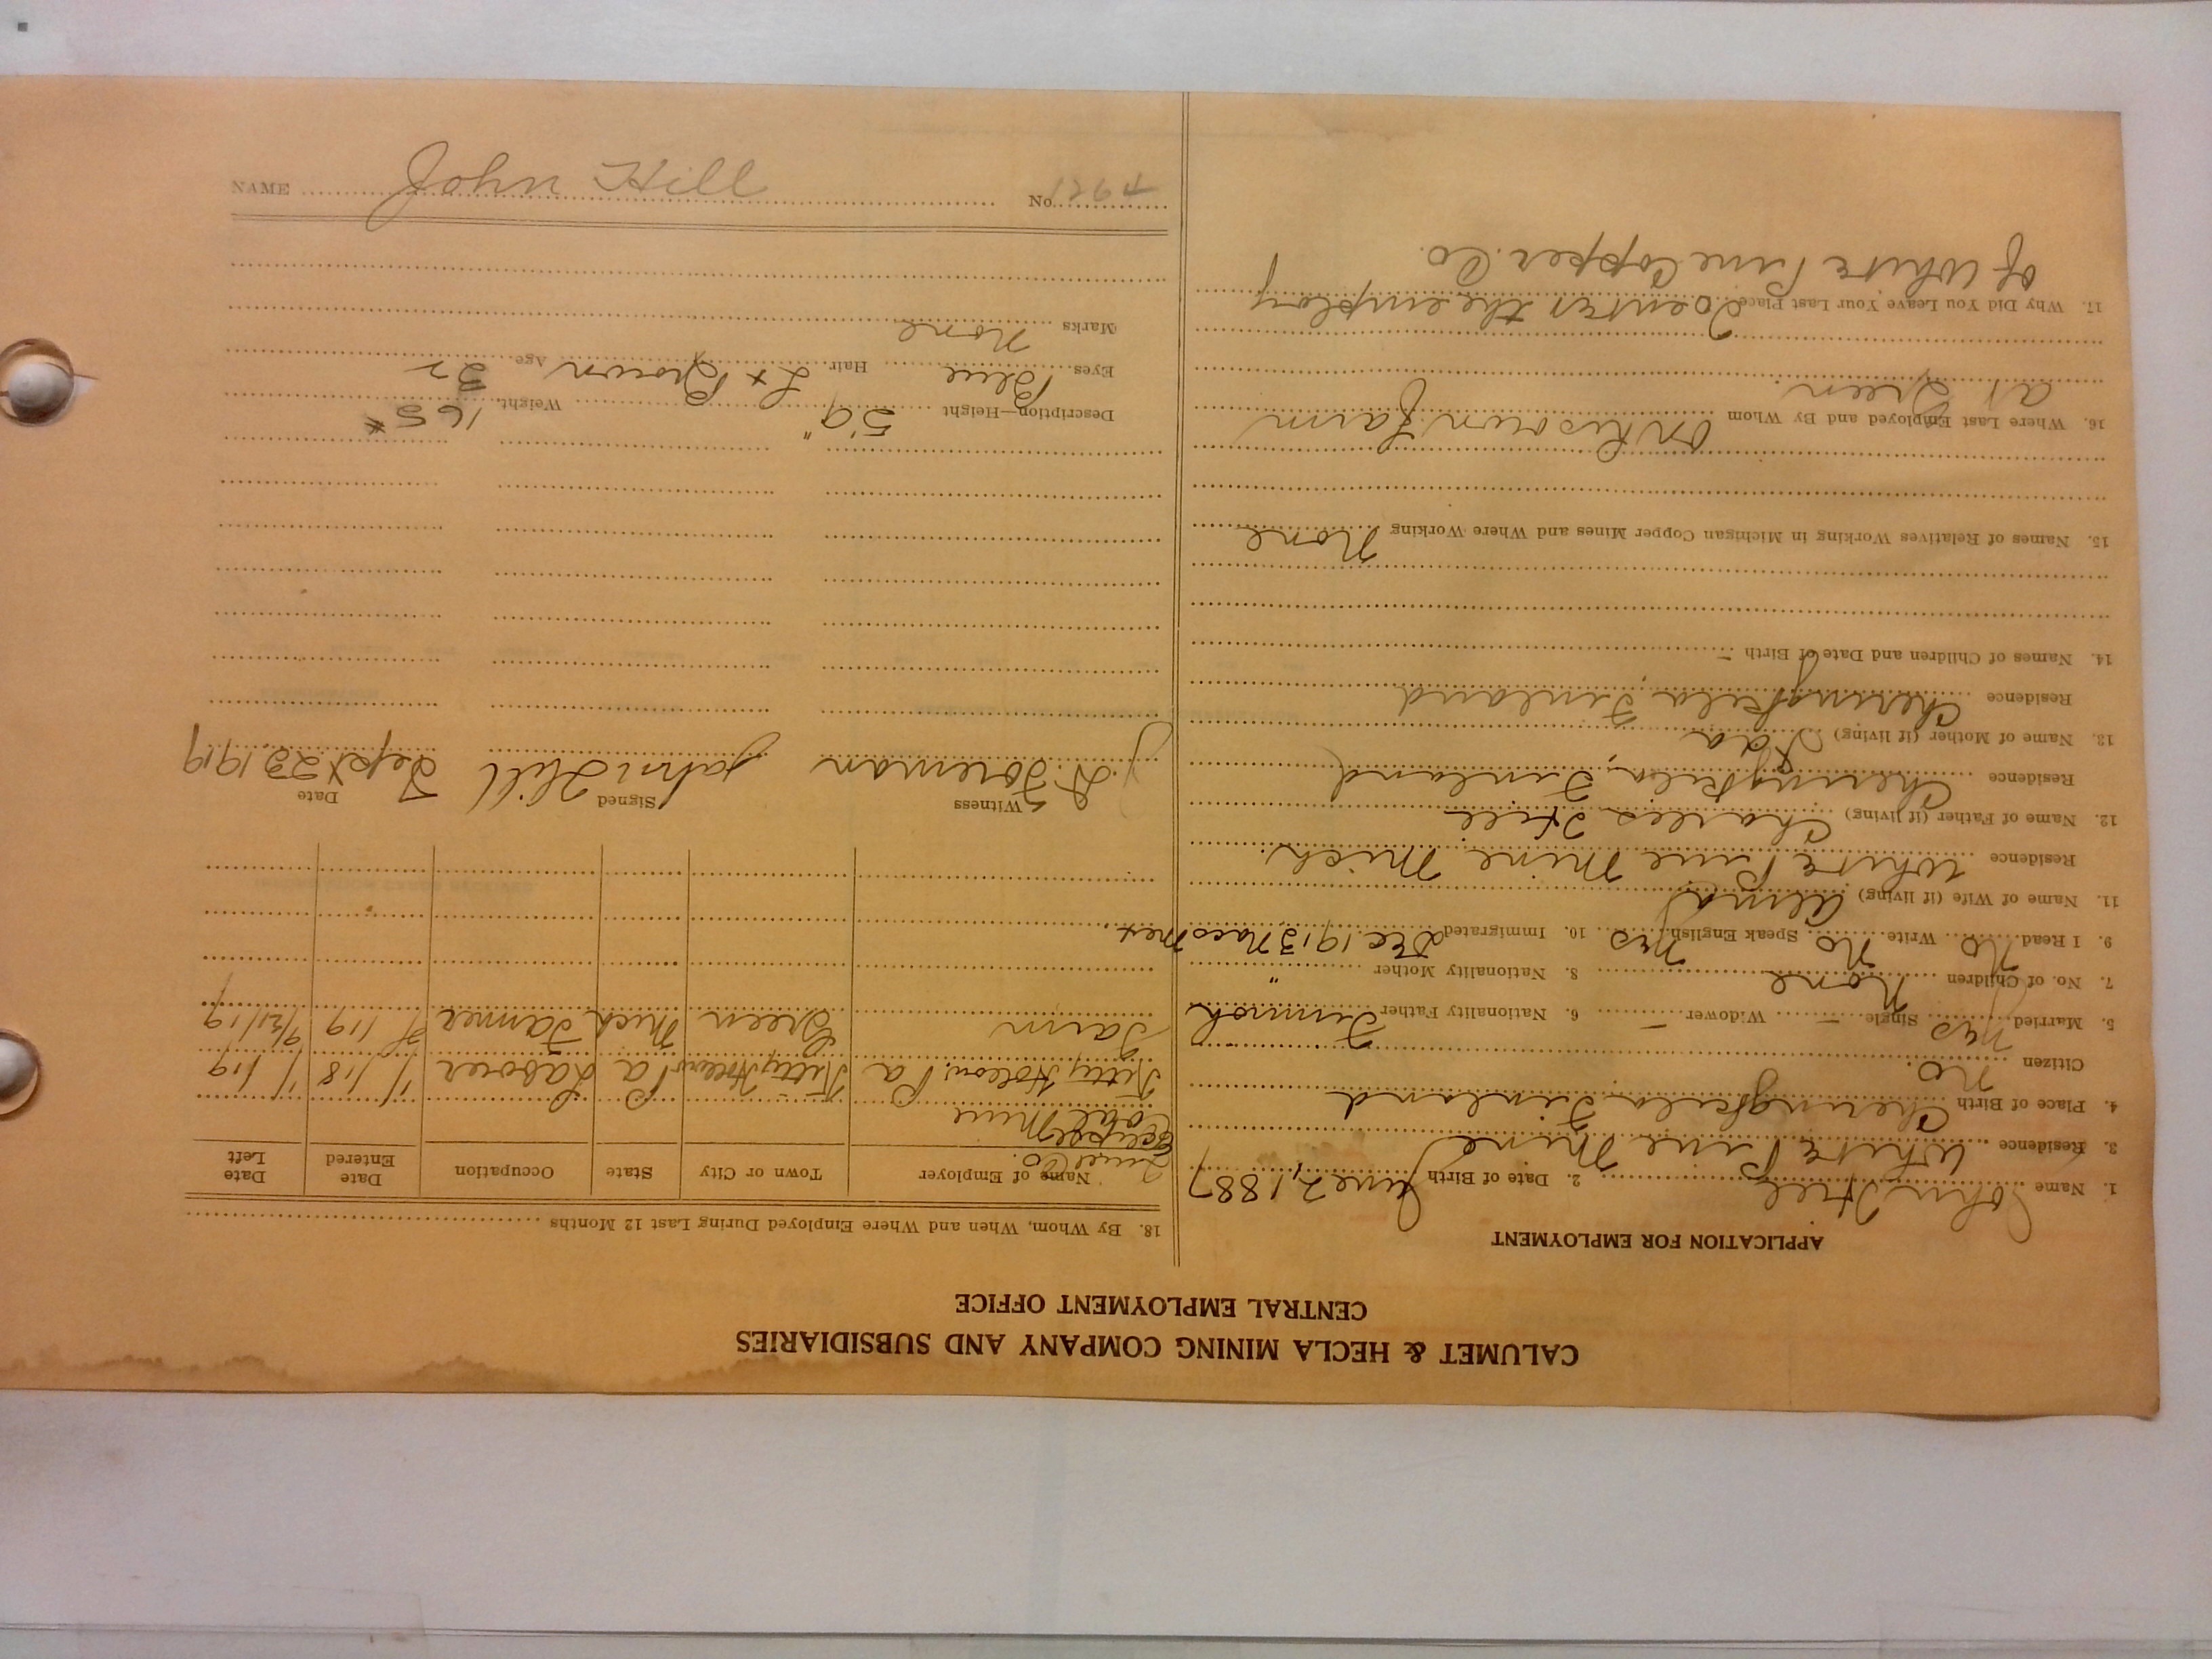 CALUMET & HECLA MINING COMPANY AND SUBSIDIARIES
CENTRAL EMPLOYMENT OFFICE
APPLICATION FOR EMPLOYMENT
1. Name John Hill 2. Date of Birth June 2, 1887
3. Residence White Pine Mine
4. Place of Birth Finland
Citizen no.
5. Married yes Single – Widower – 6. Nationality Father Finnish
7. No. of Children None 8. Nationality Mother "
9. I Read No Write No Speak English yes 10. Immigrated Dec 1913
11. Name of Wife (if living) Alma
Residence White Pine Mine, Mich.
12. Name of Father (if living) Charles Hill
Residence Finland
13. Name of Mother (if living) Ida
Residence Finland
14. Names of Children and Date of Birth –
15. Names of Relatives Working in Michigan Copper Mines and Where Working None
16. Where Last Employed and By Whom On his own farm
at Green.
17. Why Did You Leave Your Last Place To enter the employ
of White Pine Copper Co.
18. By Whom, When and Where Employed During Last 12 Months
Name of Employer Town or City State Occupation Date Entered Date Left
Coal Mine
Pa Pa Laborer 1/1/18 1/1/19
Farm Green Mich Farmer /1/19 9/21/19
Witness Signed Date
Foreman John Hill Sept 23, 1919
Description—Height 5'9" Weight 165#
Eyes Blue Hair Lt Brown Age 32
Marks None
NAME John Hill No. 1264